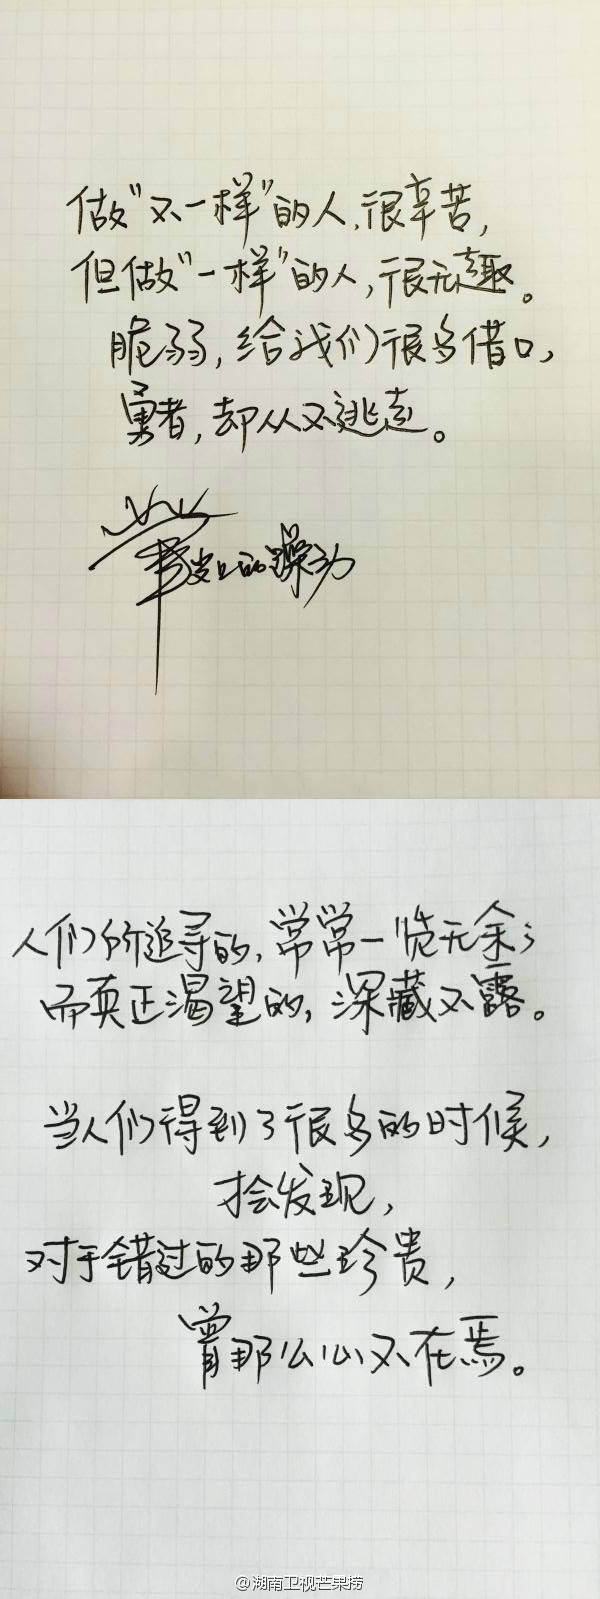 做“不一样”的人，很辛苦，
但做“一样”的人，很无趣。
脆弱，给我们很多借口，
勇者，却从不逃走。
的躁动
人们所追寻的，常常一览无余；
而真正渴望的，深藏不露。
当人们得到了很多的时候，
才会发现，
对于错过的那些珍贵，
曾那么心不在焉。
@湖南卫视芒果捞